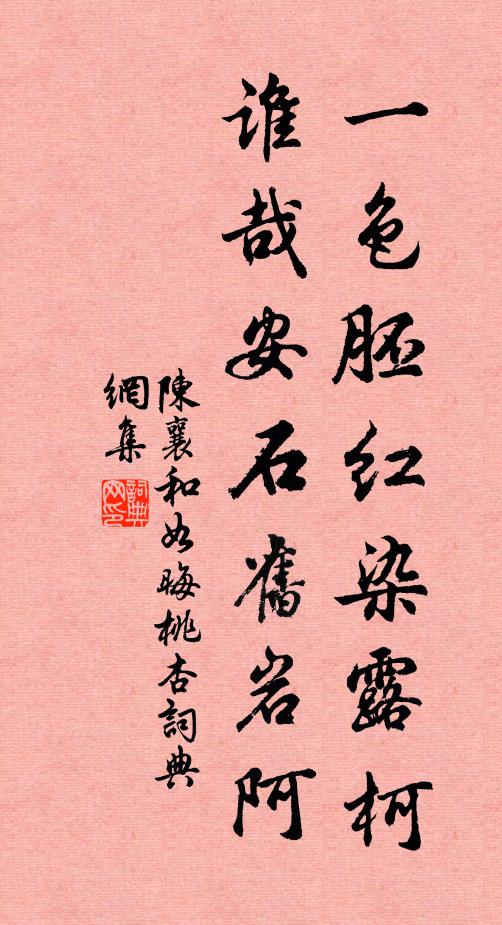 一色胚红染露柯
谁哉安石舊岩阿
陳襄和如晦桃杏詞典
網集
詞典网印